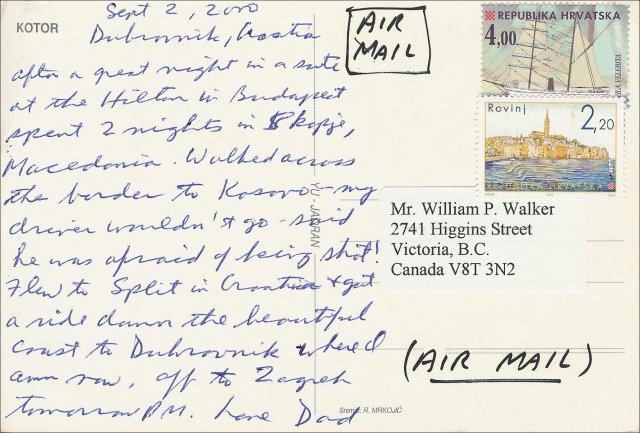 KOTOR
Sept 2, 2000
Dubrovnik, Croatia
after a great night in a suite
at the Hilton in Budapest
spent 2 nights in Skopje,
Macedonia. Walked across
the border to Kosovo - my
driver wouldn't go - said
he was afraid of being shot!
Flew to Split in Croatia & got
a ride down the beautiful
coast to Dubrovnik where I
am now, off to Zagreb
tomorrow PM. Love Dad
YU - JADRAN
Snimio: R. MRKOJIĆ
AIR
MAIL
REPUBLIKA HRVATSKA
4,00
VILA VELEBITA
Rovinj
2,20
REPUBLIKA HRVATSKA
Mr. William P. Walker
2741 Higgins Street
Victoria, B.C.
Canada V8T 3N2
(AIR MAIL)